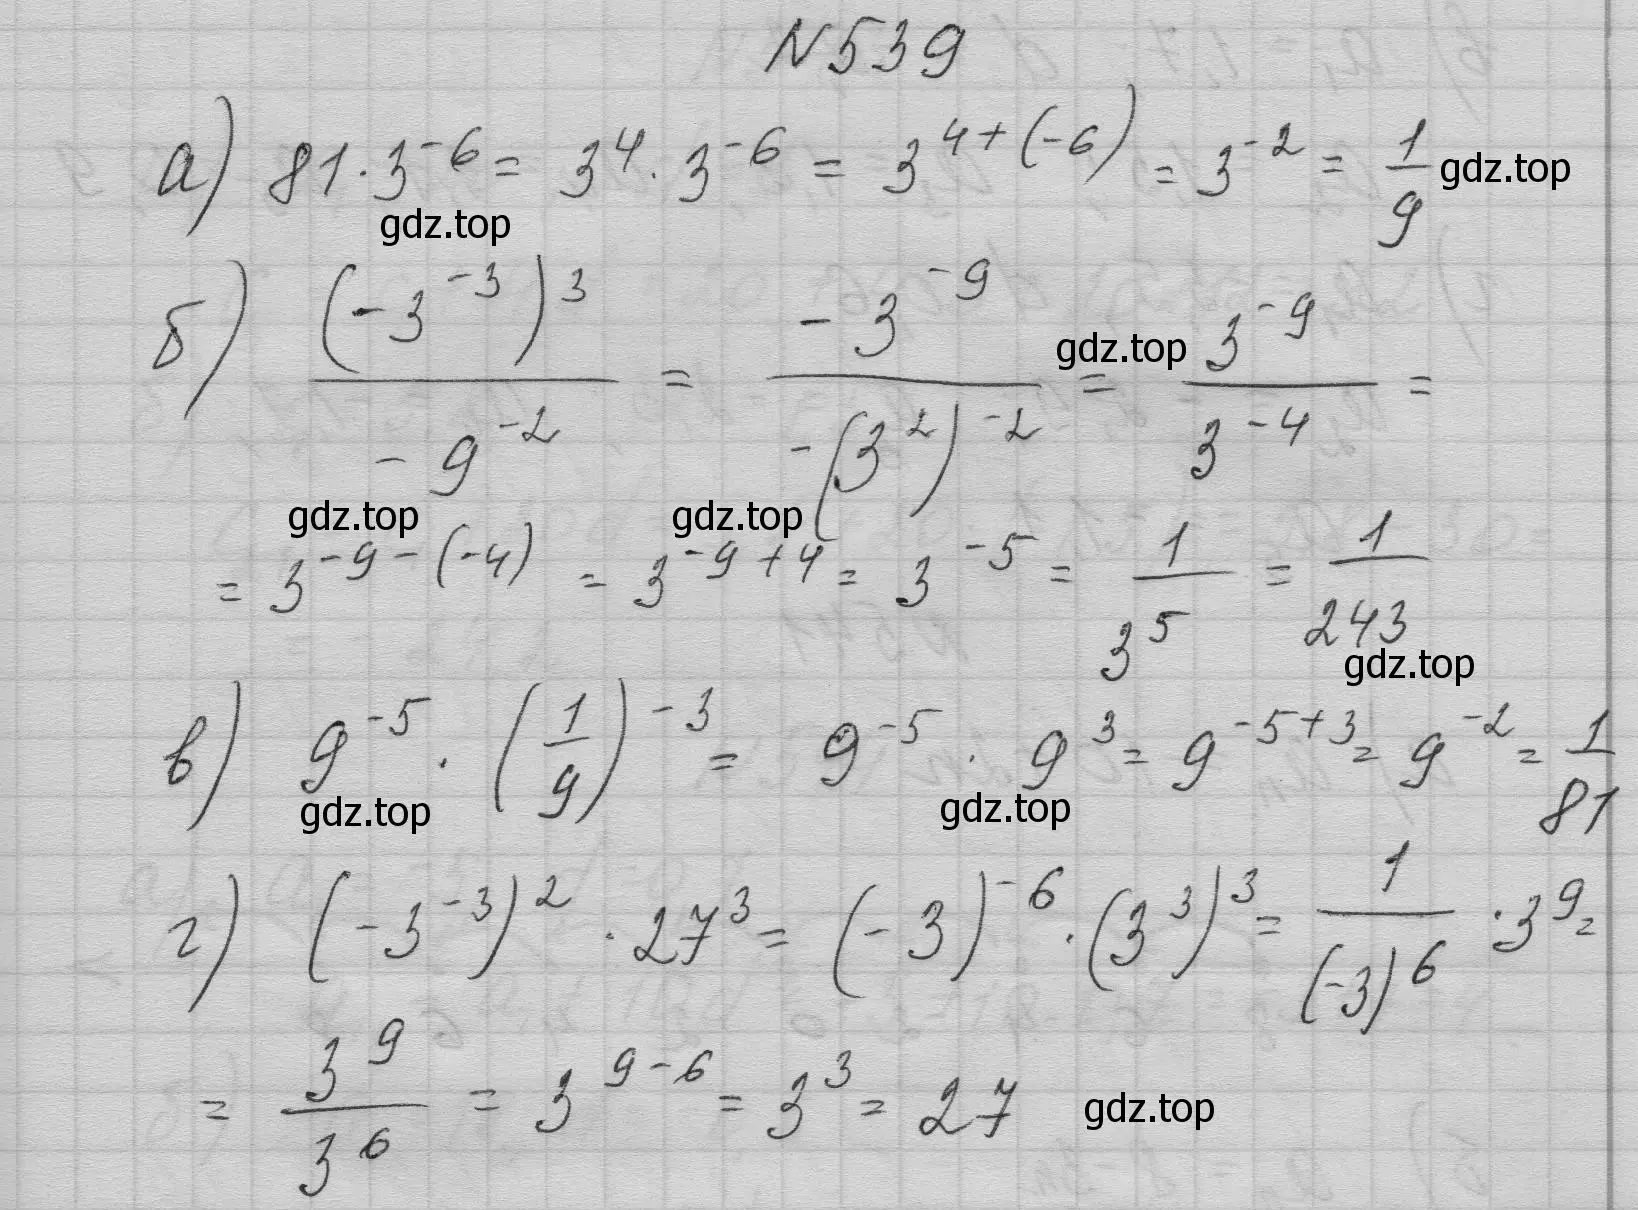 N539
а) 81·3^{-6} = 3^4·3^{-6} = 3^{4+(-6)} = 3^{-2} = 1/9 gdz.top
gdz.top
б) (-3^{-3})^3 / -9^{-2} = -3^{-9} / -(3^2)^{-2} = gdz.top 3^{-9} / 3^{-4} =
gdz.top gdz.top
= 3^{-9-(-4)} = 3^{-9+4} = 3^{-5} = 1/3^5 = 1/243
gdz.top
в) 9^{-5}·(1/9)^{-3} = 9^{-5}·9^3 = 9^{-5+3} = 9^{-2} = 1/81
gdz.top gdz.top
г) (-3^{-3})^2·27^3 = (-3)^{-6}·(3^3)^3 = 1/(-3)^6·3^9 =
= 3^9/3^6 = 3^{9-6} = 3^3 = 27 gdz.top